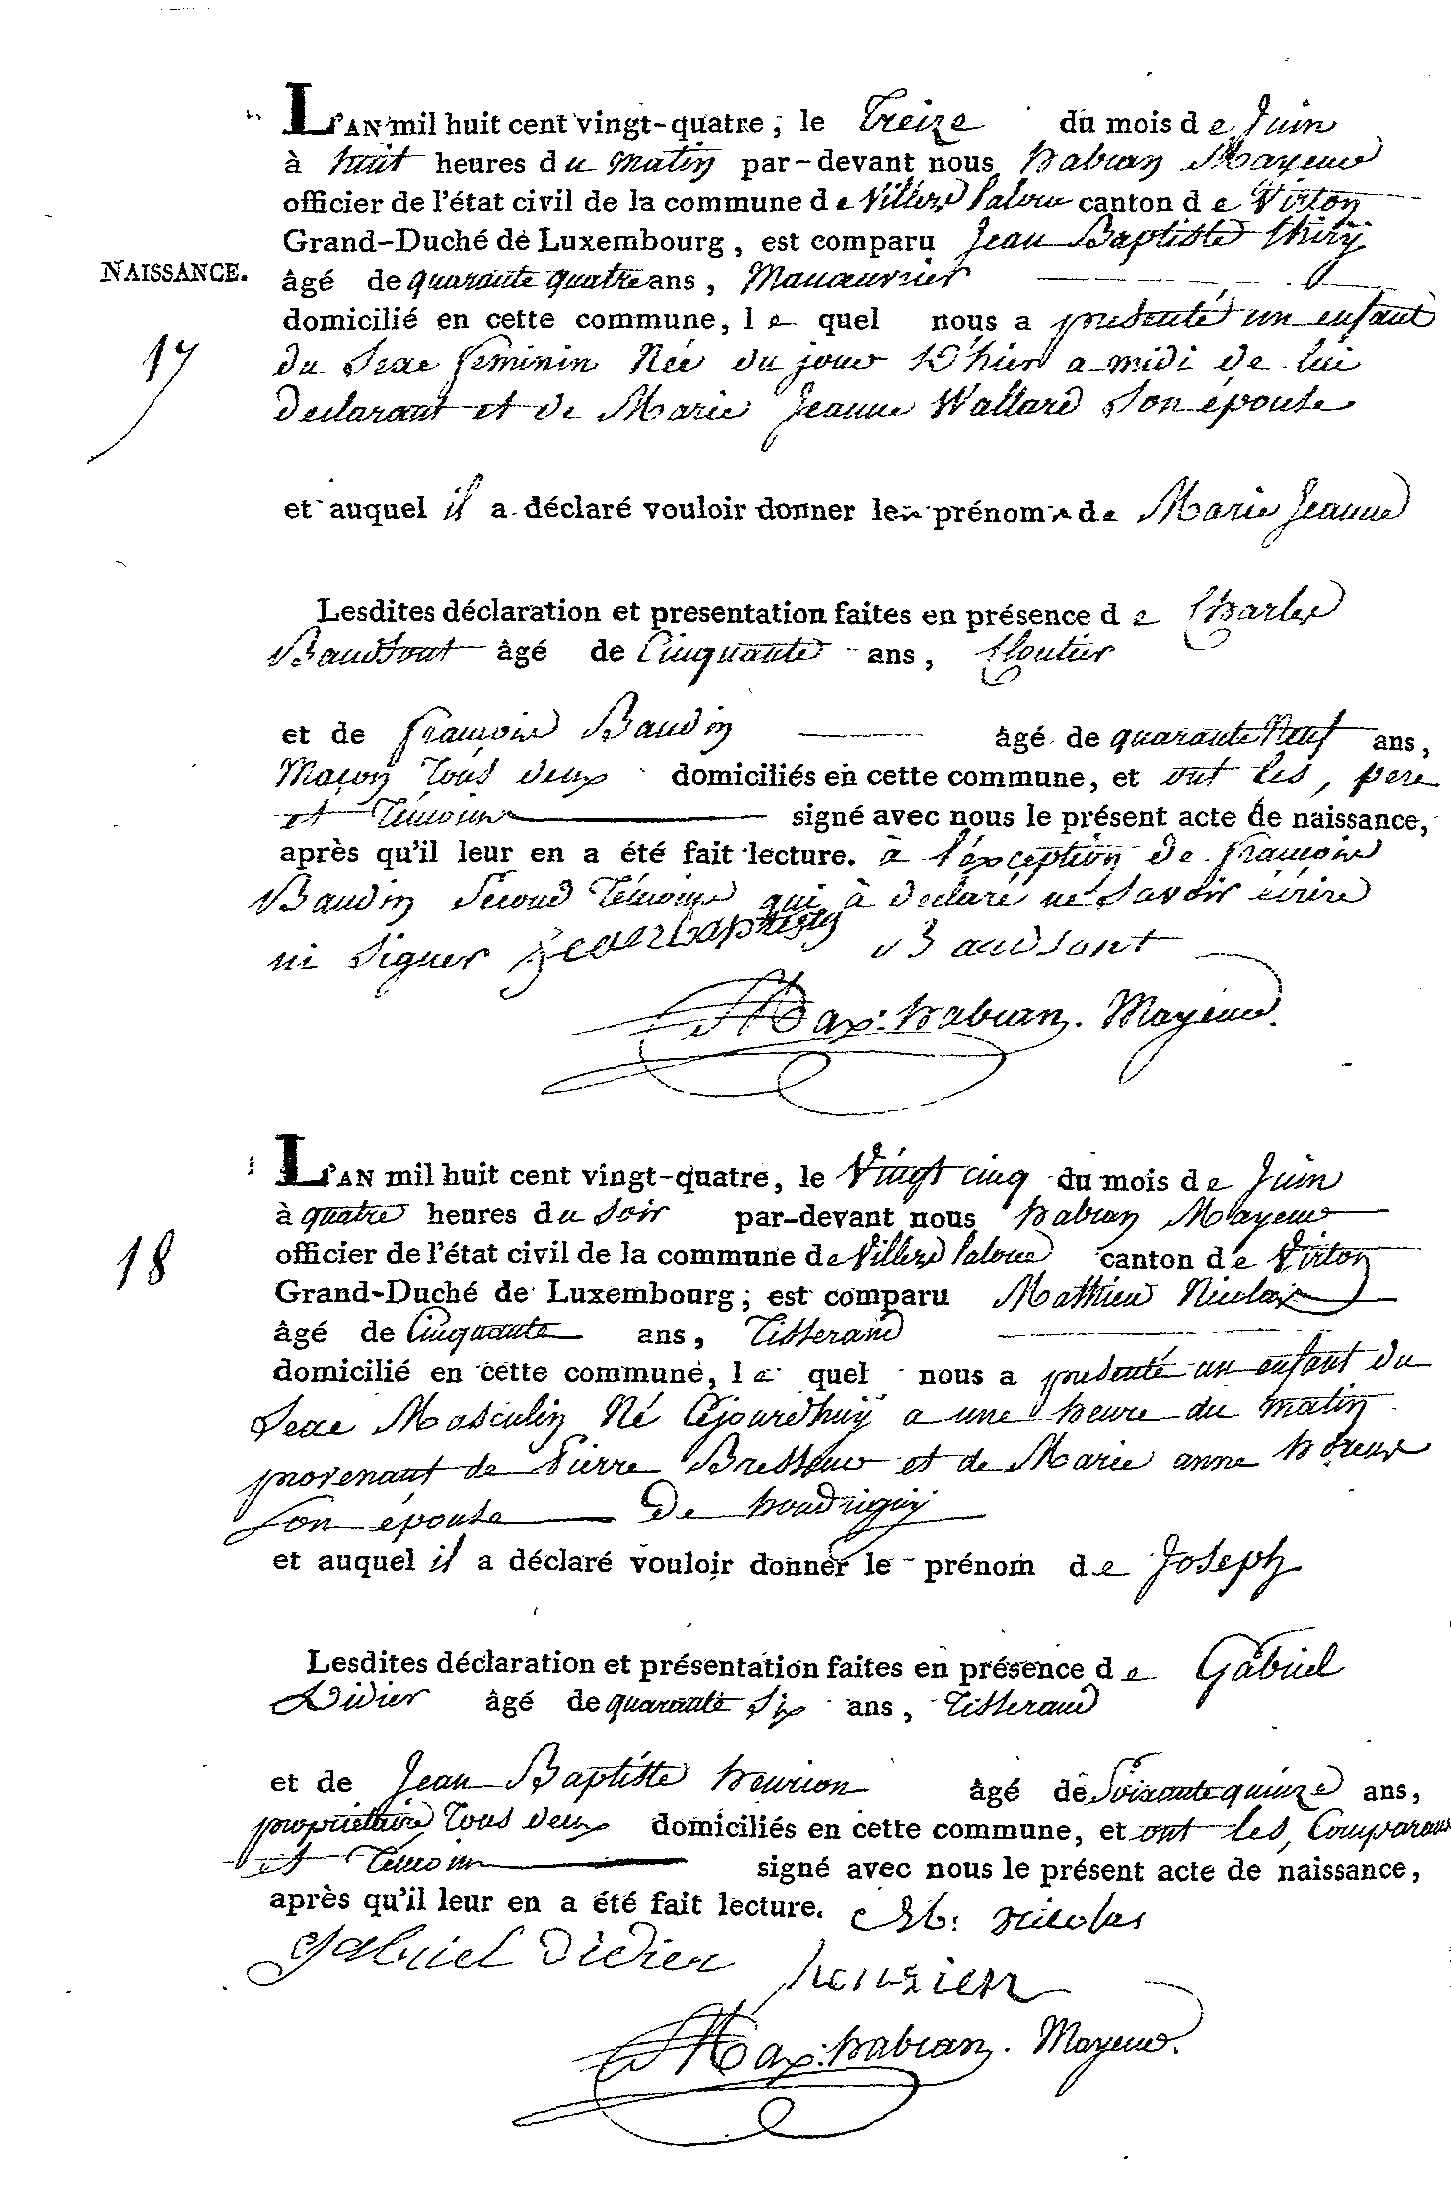 L'AN mil huit cent vingt-quatre, le Treize du mois de Juin
à huit heures du matin par-devant nous habran Mayeur
officier de l'état civil de la commune de Villers laloue canton de Virton
Grand-Duché de Luxembourg, est comparu Jean Baptiste thiry
NAISSANCE.
âgé de quarante quatre ans, Manœuvrier
domicilié en cette commune, le quel nous a présenté un enfant
17
du Sexe feminin Née du jour D'hier a midi de lui
declarant et de Marie Jeanne Wallard Son épouse
et auquel il a déclaré vouloir donner les prénoms de Marie Jeanne
Lesdites déclaration et presentation faites en présence de Charles
Baudsont âgé de Cinquante ans, Cloutier
et de françois Baudin âgé de quarante Neuf ans,
Maçon Tous deux domiciliés en cette commune, et ont les, pere
et Témoins signé avec nous le présent acte de naissance,
après qu'il leur en a été fait lecture. à l'éxception de françois
Baudin Second Témoins qui à declaré ne Savoir écrire
ni Signer Jean baptiste Baudsont
Max: habran. Mayeur.
L'AN mil huit cent vingt-quatre, le Vingt cinq du mois de Juin
à quatre heures du Soir par-devant nous habran Mayeur
18
officier de l'état civil de la commune de Villers laloue canton de Virton
Grand-Duché de Luxembourg; est comparu Mathieu Nicolas
âgé de Cinquante ans, Tisserand
domicilié en cette commune, le quel nous a présenté un enfant du
Sexe Masculin Né Cejourdhuy a une heure du matin
provenant de Pierre Bresseur et de Marie anne
Son épouse De houdrigny
et auquel il a déclaré vouloir donner le prénom de Joseph
Lesdites déclaration et présentation faites en présence de Gabriel
Didier âgé de quarante Six ans, Tisserand
et de Jean Baptiste henrion âgé de Soixante quinze ans,
propriétaire Tous deux domiciliés en cette commune, et ont les, Comparant
et Témoins signé avec nous le présent acte de naissance,
après qu'il leur en a été fait lecture. M: nicolas
gabriel didier henrion
Max: habran. Mayeur.